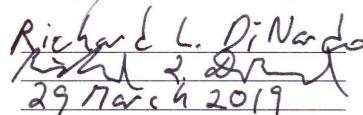 Richard L. DiNardo
29 March 2019